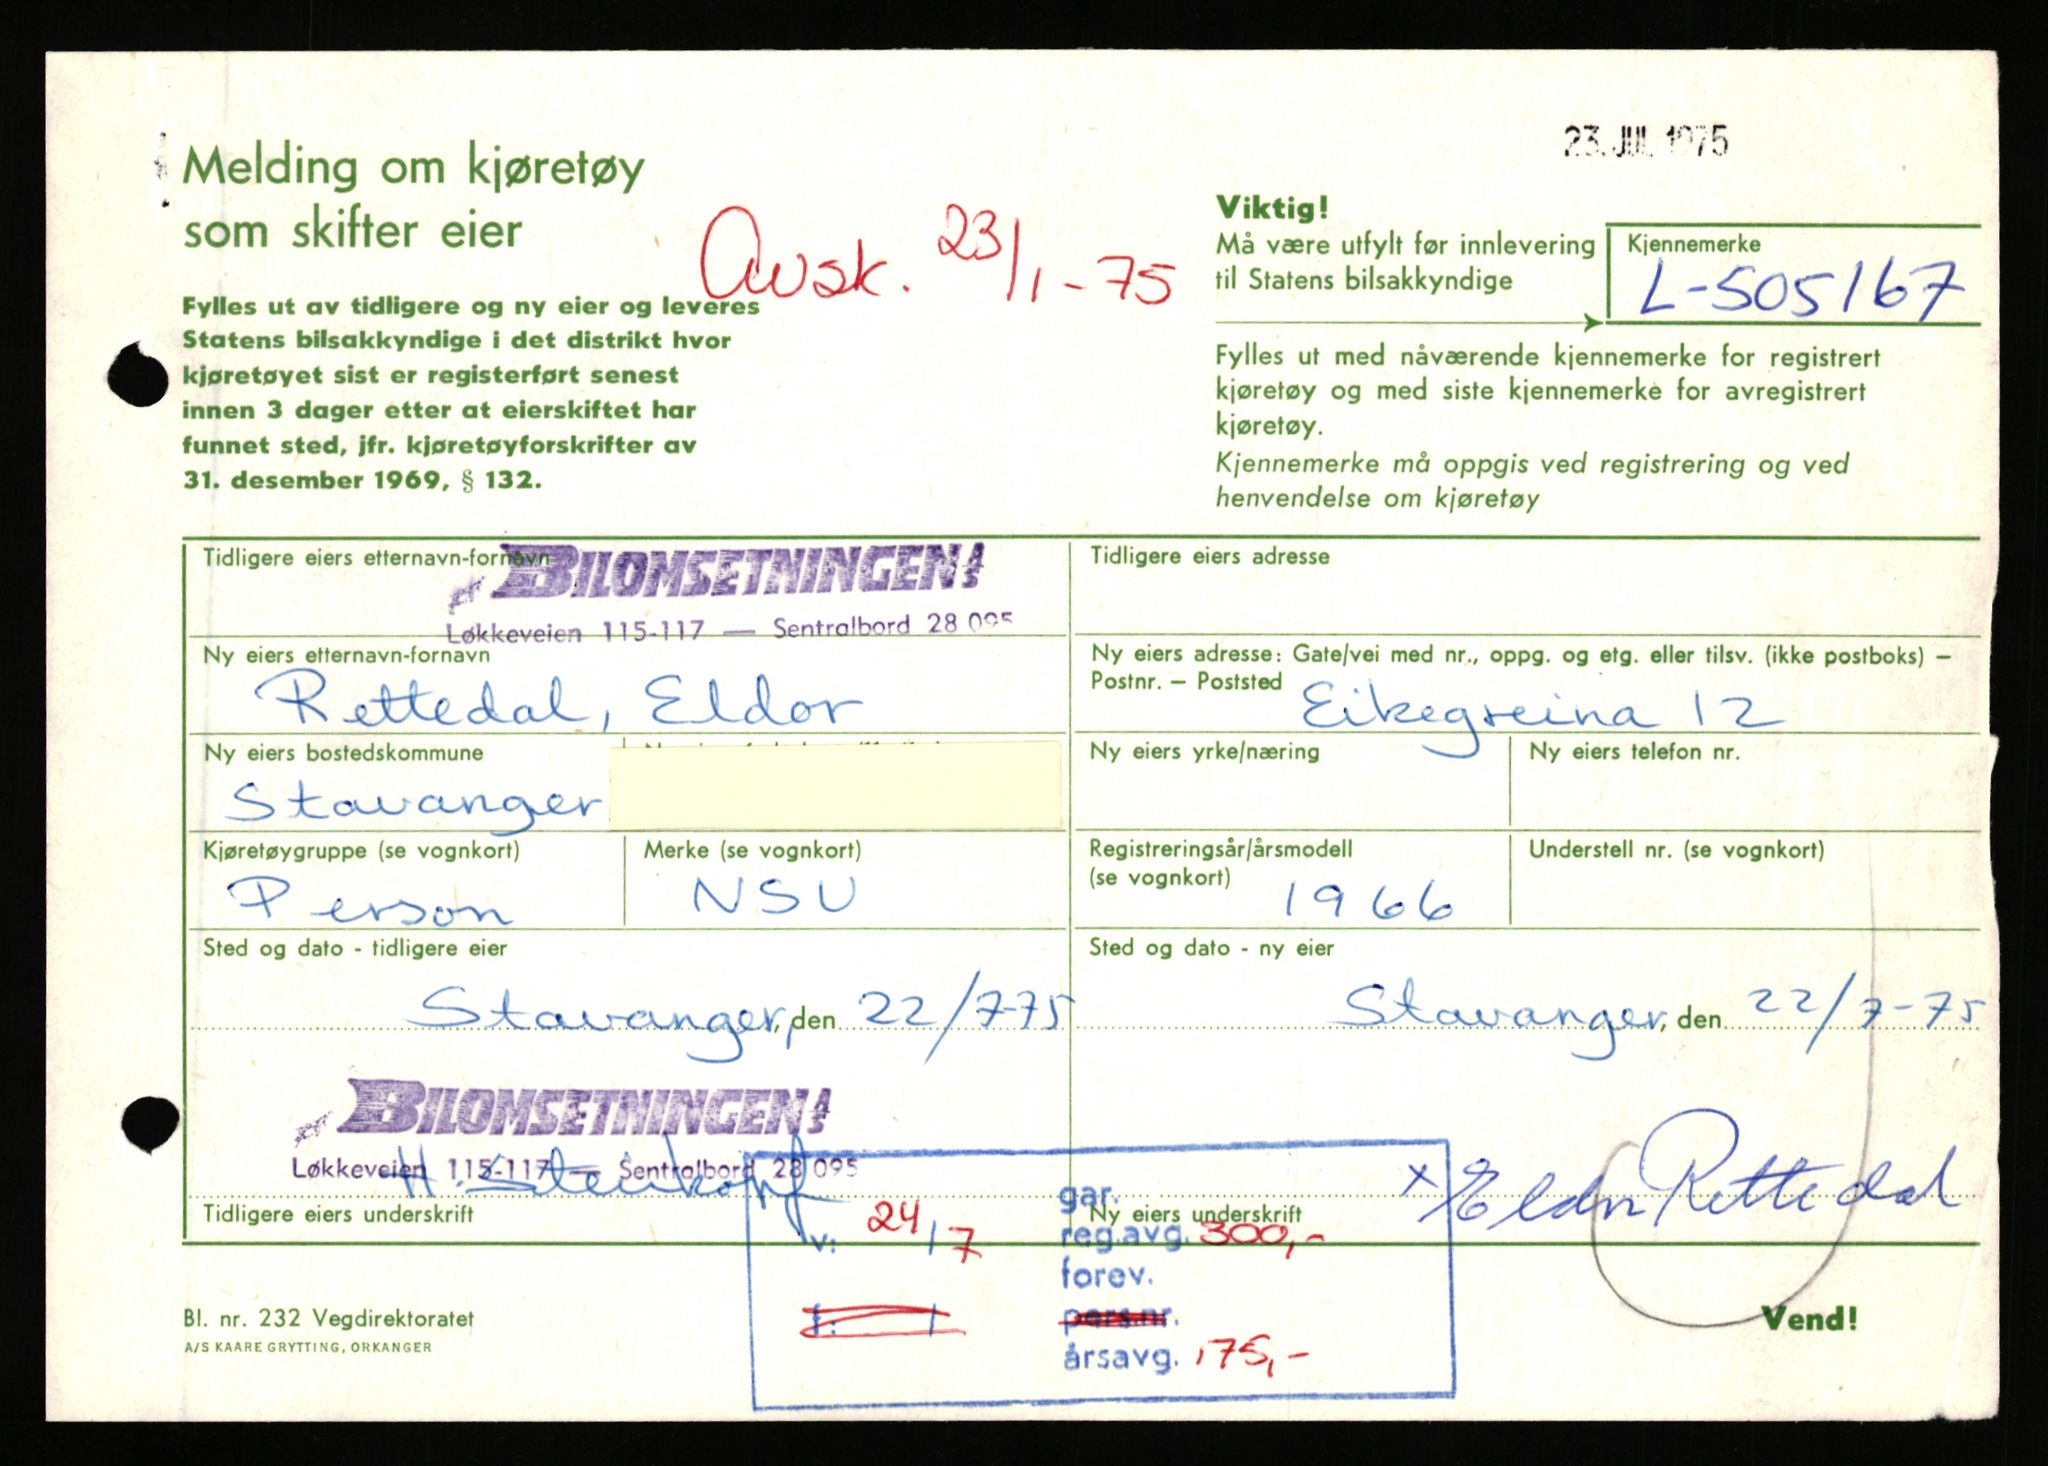 23. JUL 1975
Melding om kjøretøy
som skifter eier
Avsk. 23/1-75
Fylles ut av tidligere og ny eier og leveres
Statens bilsakkyndige i det distrikt hvor
kjøretøyet sist er registerført senest
innen 3 dager etter at eierskiftet har
funnet sted, jfr. kjøretøyforskrifter av
31. desember 1969, § 132.
Viktig!
Må være utfylt før innlevering
til Statens bilsakkyndige
Kjennemerke
L-505167
Fylles ut med nåværende kjennemerke for registrert
kjøretøy og med siste kjennemerke for avregistrert
kjøretøy.
Kjennemerke må oppgis ved registrering og ved
henvendelse om kjøretøy
Tidligere eiers etternavn-fornavn
BILOMSETNINGEN A/S
Løkkeveien 115-117 — Sentralbord 28 095
Tidligere eiers adresse
Ny eiers etternavn-fornavn
Rettedal, Eldor
Ny eiers adresse: Gate/vei med nr., oppg. og etg. eller tilsv. (ikke postboks) –
Postnr. – Poststed
Eikegreina 12
Ny eiers bostedskommune
Stavanger
Ny eiers yrke/næring
Ny eiers telefon nr.
Kjøretøygruppe (se vognkort)
Person
Merke (se vognkort)
NSU
Registreringsår/årsmodell
(se vognkort)
1966
Understell nr. (se vognkort)
Sted og dato - tidligere eier
Stavanger, den 22/7-75
Sted og dato - ny eier
Stavanger, den 22/7-75
BILOMSETNINGEN A/S
Løkkeveien 115-117 — Sentralbord 28 095
H. Steinkopf
Tidligere eiers underskrift
x Eldor Rettedal
Ny eiers underskrift
v: 24/7
f: /
gar.
reg.avg. 300,-
forev.
pers.nr.
årsavg. 175,-
Bl. nr. 232 Vegdirektoratet
A/S KAARE GRYTTING, ORKANGER
Vend!